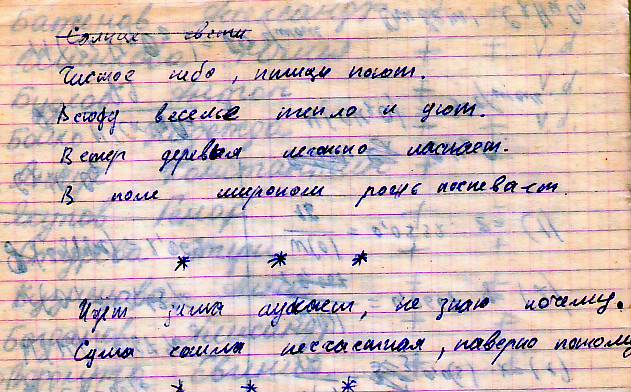 Солнце свети
Чистое небо, птицы поют.
Всюду веселье тепло и уют.
Ветер деревья легонько ласкает.
В поле широком рожь поспевает.
* * *
Идет зима пускает, не знаю почему.
Сума сошла несчастная, наверно потому
* * *